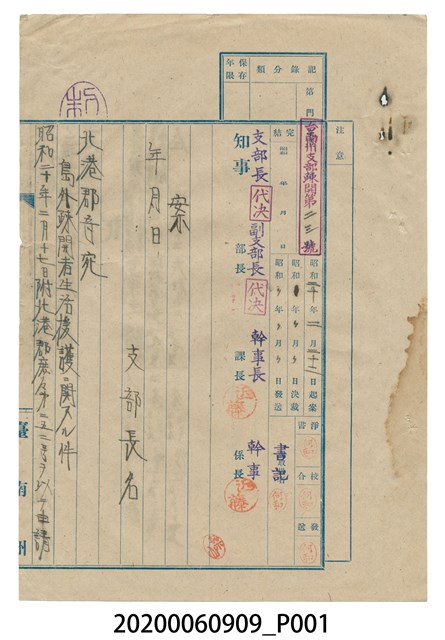 記錄分類
第門
保存年限
注意
台南州支部疎開第二三號
完結 昭 年 月 日
昭和二十年二月二十二日起案
昭和 年 月 日決裁
昭和 年 月 日發送
淨書
校合
發送
支部長 代決
副支部長 代決
幹事長
幹事
書記
知事
部長
課長
係長
案
年月日
支部長名
北港郡守宛
島外疎開者生活援護ニ関スル件
昭和二十年二月十七日附北港郡庶
以テ申請
臺南州
20200060909_P001